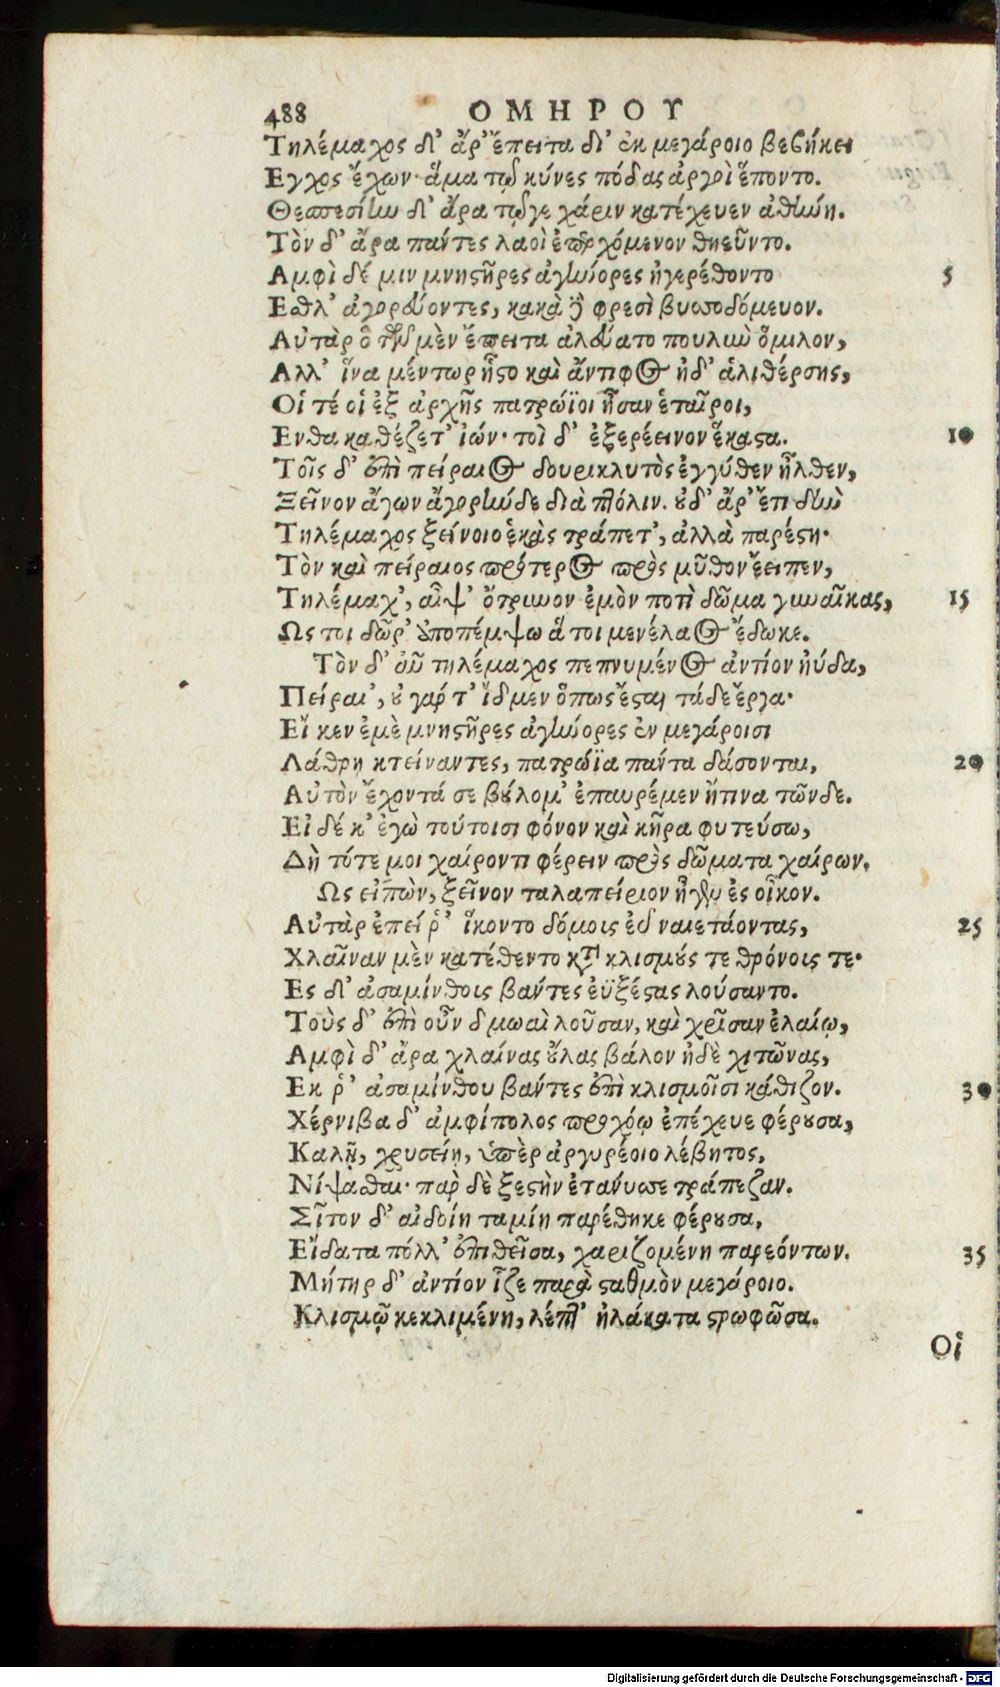 488 ΟΜΗΡΟΥ
Τηλέμαχος δ' ἄρ' ἔπειτα δι' ἐκ μεγάροιο βεβήκει
Εγχος ἔχων· ἅμα τῷ κύνες πόδας ἀργοὶ ἕποντο.
Θεσπεσίην δ' ἄρα τῷγε χάριν κατέχευεν ἀθήνη.
Τὸν δ' ἄρα πάντες λαοὶ ἐπερχόμενον θηεῦντο.
Αμφὶ δέ μιν μνηστῆρες ἀγήνορες ἠγερέθοντο 5
Εσθλ' ἀγορεύοντες, κακὰ δὲ φρεσὶ βυσσοδόμευον.
Αὐτὰρ ὁ τῶν μὲν ἔπειτα ἀλεύατο πουλὺν ὅμιλον,
Αλλ' ἵνα μέντωρ ἧστο καὶ ἄντιφος ἠδ' ἁλιθέρσης,
Οἵ τέ οἱ ἐξ ἀρχῆς πατρώϊοι ἦσαν ἑταῖροι,
Ενθα καθέζετ' ἰών· τοὶ δ' ἐξερέεινον ἕκαστα. 10
Τοῖς δ' ἐπὶ πείραιος δουρικλυτὸς ἐγγύθεν ἦλθεν,
Ξεῖνον ἄγων ἄγορήνδε διὰ πτόλιν. οὐδ' ἄρ' ἔτι δὴν
Τηλέμαχος ξείνοιο ἑκὰς τράπετ', ἀλλὰ παρέστη·
Τὸν καὶ πείραιος πρότερος πρὸς μῦθον ἔειπεν,
Τηλέμαχ', αἶψ' ὄτρυνον ἐμὸν ποτὶ δῶμα γυναῖκας, 15
Ως τοι δῶρ' ἀποπέμψω ἅ τοι μενέλαος ἔδωκε.
Τὸν δ' αὖ τηλέμαχος πεπνυμένος ἀντίον ηὔδα,
Πείραι', οὐ γάρ τ' ἴδμεν ὅπως ἔσται τάδε ἔργα·
Εἴ κεν ἐμὲ μνηστῆρες ἀγήνορες ἐν μεγάροισι
Λάθρη κτείναντες, πατρώϊα πάντα δάσονται, 20
Αὐτὸν ἔχοντά σε βούλομ' ἐπαυρέμεν ἤτινα τῶνδε.
Εἰ δέ κ' ἐγὼ τούτοισι φόνον καὶ κῆρα φυτεύσω,
Δὴ τότε μοι χαίροντι φέρειν πρὸς δώματα χαίρων.
Ως εἰπὼν, ξεῖνον ταλαπείριον ἦγεν ἐς οἶκον.
Αὐτὰρ ἐπεί ῥ' ἵκοντο δόμοις εὖ ναιετάοντας, 25
Χλαῖναν μὲν κατέθεντο κατὰ κλισμούς τε θρόνοις τε·
Ες δ' ἀσαμίνθοις βάντες ἐϋξέστας λούσαντο.
Τοὺς δ' ἐπὶ οὖν δμωαὶ λοῦσαν, καὶ χρῖσαν ἐλαίῳ,
Αμφὶ δ' ἄρα χλαίνας οὔλας βάλον ἠδὲ χιτῶνας,
Εκ ῥ' ἀσαμίνθου βάντες ἐπὶ κλισμοῖσι κάθιζον. 30
Χέρνιβα δ' ἀμφίπολος προχόῳ ἐπέχευε φέρουσα,
Καλῇ, χρυσείη, ὑπὲρ ἀργυρέοιο λέβητος,
Νίψασθαι· παρὰ δὲ ξεστὴν ἐτάνυσσε τράπεζαν.
Σῖτον δ' αἰδοίη ταμίη παρέθηκε φέρουσα,
Εἴδατα πόλλ' ἐπιθεῖσα, χαριζομένη παρεόντων. 35
Μήτηρ δ' ἀντίον ἷζε παρὰ σταθμὸν μεγάροιο.
Κλισμῷ κεκλιμένη, λέπτ' ἠλάκατα στρωφῶσα.
Οἱ
Digitalisierung gefördert durch die Deutsche Forschungsgemeinschaft - DFG